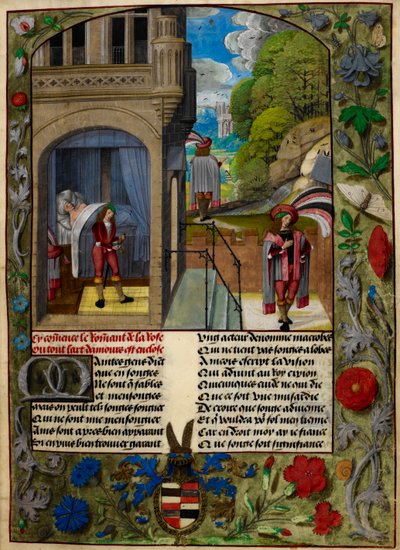 Cy comence le Romant de la Rose
Ou tout lart damours est enclose
Maintes gens diēt
Que en songes
Ne sont q̄ fables
et mensonges
Mais on peult telz songes songier
Qui ne sont mie mensongier
Ains sont apres bien apparant
Si en puis bien trouuer garant
Ung acteur denomme macrobes
Qui ne tient pas songes a lobes
Aincois escript la vision
Qui aduint au roy cipion
Quiconques cuide ne qui die
Que ce soit une musardie
De croire que songe aduiengne
Et q̄ vouldra po᷑ fol men tiengne
Car en droit moy ay ie fiance
Que songe soit signifiance